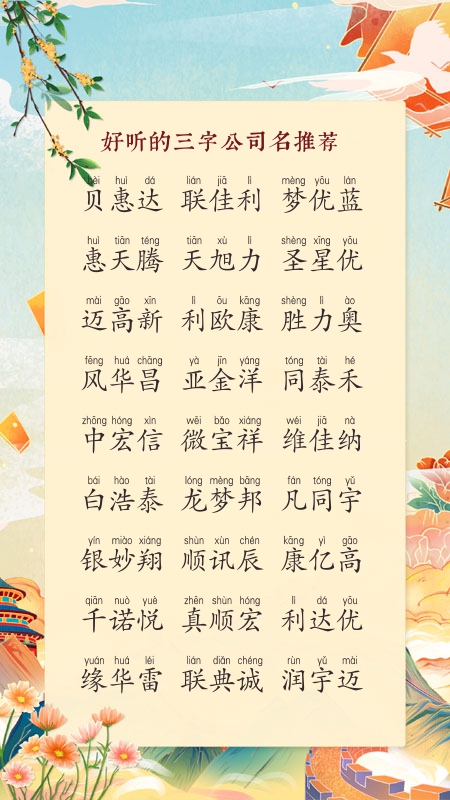 好听的三字公司名推荐
bèi huì dá lián jiā lì mèng yōu lán
贝惠达 联佳利 梦优蓝
huì tiān téng tiān xù lì shèng xīng yōu
惠天腾 天旭力 圣星优
mài gāo xīn lì ōu kāng shèng lì ào
迈高新 利欧康 胜力奥
fēng huá chāng yà jīn yáng tóng tài hé
风华昌 亚金洋 同泰禾
zhōng hóng xìn wēi bǎo xiáng wéi jiā nà
中宏信 微宝祥 维佳纳
bái hào tài lóng mèng bāng fán tóng yǔ
白浩泰 龙梦邦 凡同宇
yín miào xiáng shùn xùn chén kāng yì gāo
银妙翔 顺讯辰 康亿高
qiān nuò yuè zhēn shùn hóng lì dá yōu
千诺悦 真顺宏 利达优
yuán huá léi lián diǎn chéng rùn yǔ mài
缘华雷 联典诚 润宇迈